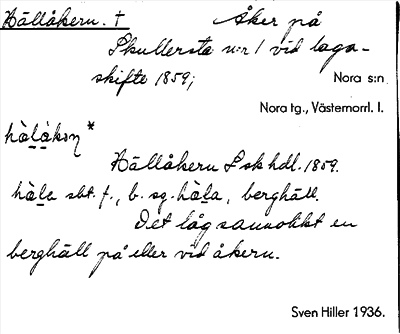 Hällåkern. † Åker på
Skullersta n:r 1 vid laga-
skifte 1859;
Nora s:n
Nora tg., Västernorrl. l.
hä̀lå̀kɔn *
Hällåkern Lsk hdl. 1859.
hä̀la sbt. f., b. sg. hä̀la, berghäll.
Det låg sannolikt en
berghäll på eller vid åkern.
Sven Hiller 1936.